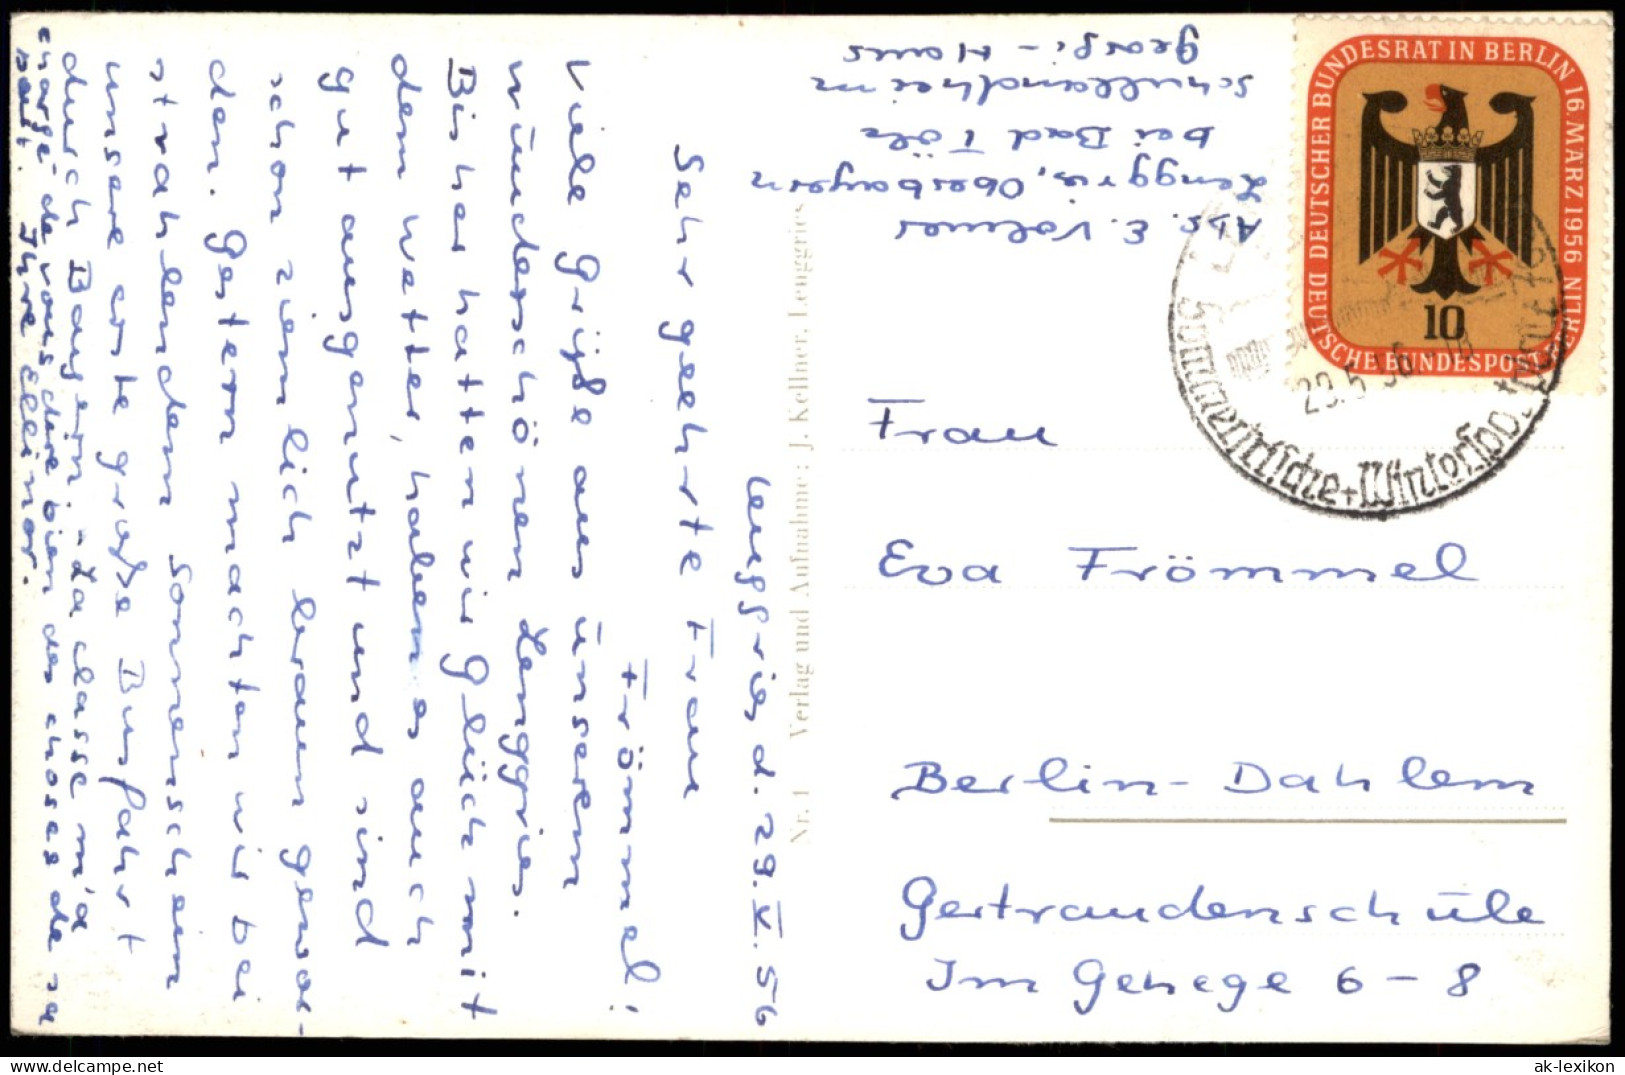 Lenggries d. 29. V. 56
Sehr geehrte Frau
Frömmel!
Viele Grüße aus unserem
wunderschönen Lenggries.
Bisher hatten wir Glück mit
dem Wetter, haben es auch
gut ausgenutzt und sind
schon ziemlich braun gewor-
den. Gestern machten wir bei
strahlendem Sonnenschein
unsere erste große Busfahrt
durch Bayern. - La classe m'a
chargé de vous dire bien des choses de sa
part. Ihre Ellinor.
Abs. E. Volmer
Lenggries, Oberbayern
bei Bad Tölz
Schullandheim
Georgi-Haus
Nr. 1 Verlag und Aufnahme: J. Kellner, Lenggries
DEUTSCHER BUNDESRAT IN BERLIN 16. MÄRZ 1956
DEUTSCHE BUNDESPOST BERLIN
10
29.5.56
Sommerfrische + Wintersportplatz
Frau
Eva Frömmel
Berlin-Dahlem
Gertraudenschule
Im Gehege 6-8
ak-lexikon